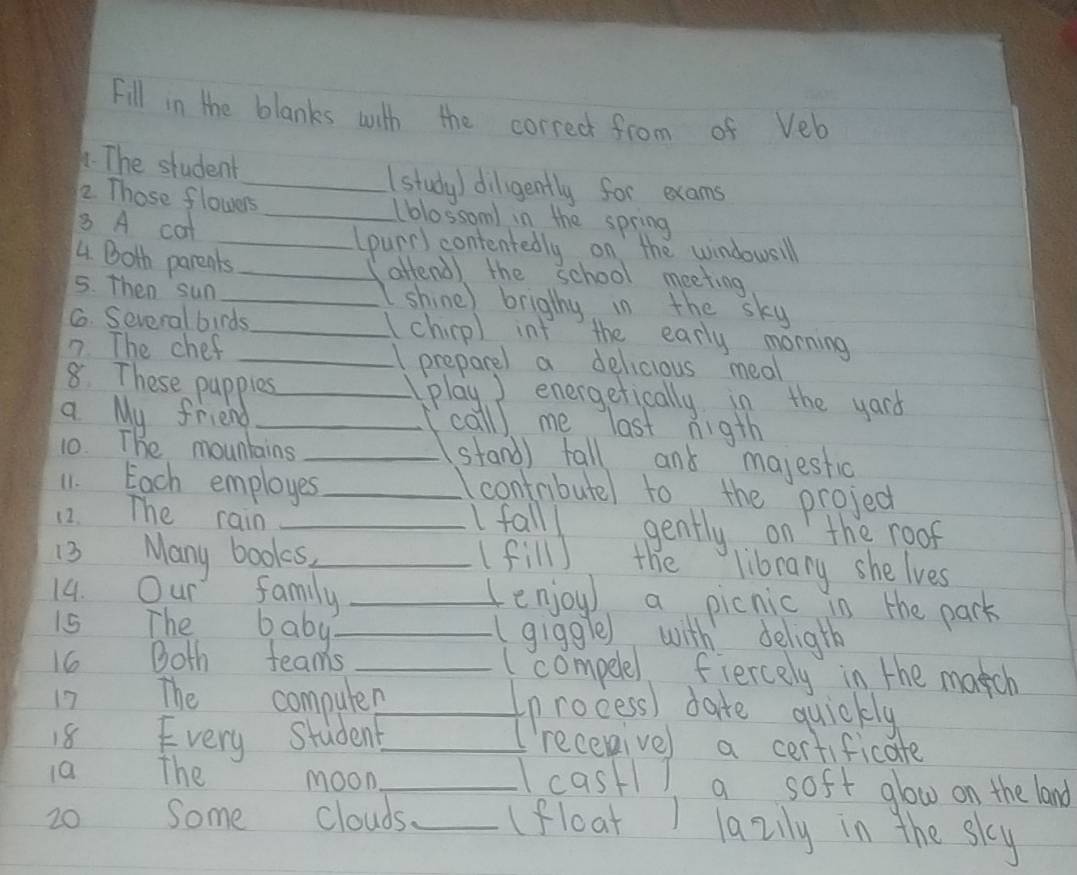 Fill in the blanks with the correct from of Veb
1. The student ______ (study) diligently for exams
2. Those flowers ______ (blossom) in the spring
3 A cat ______ (purr) contentedly on the windowsill
4. Both parents ______ (attend) the school meeting
5. Then sun ______ (shine) brigthy in the sky
6. Several birds ______ (chirp) int the early morning
7. The chef ______ (prepare) a delicious meal
8. These puppies ______ (play) energetically in the yard
9 My friend ______ (call) me last nigth
10. The mountains ______ (stand) tall and majestic
11. Each employes ______ (contribute) to the project
12. The rain ______ (fall) gently on the roof
13 Many books ______ (fill) the library shelves
14. Our family ______ (enjoy) a picnic in the park
15 The baby ______ (giggle) with deligth
16 Both teams ______ (compete) fiercely in the match
17 The computer ______ (process) date quickly
18 Every Student ______ (receive) a certificate
19 The moon ______ (cast) a soft glow on the land
20 Some clouds ______ (float) lazily in the sky